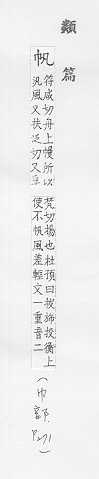 類篇
帆
符咸切舟上幔所以
汎風又扶泛切又孚
梵切揚也杜預曰拔斾投衡上
使不帆風差輕文一重音二
(巾部 P.271)